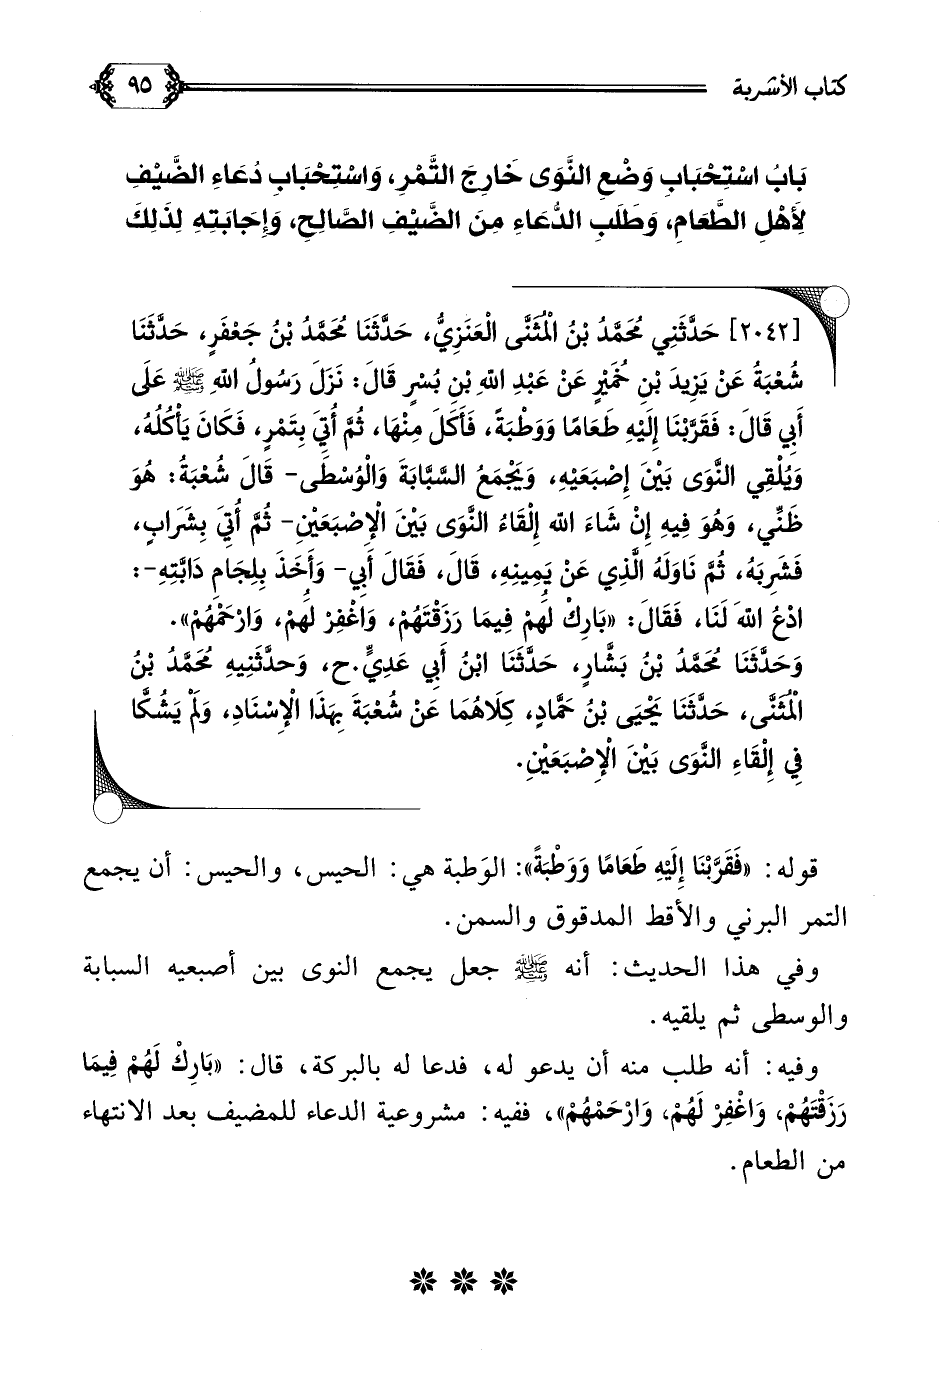 كتاب الأشربة
٩٥
بَابُ اسْتِحْبَابِ وَضْعِ النَّوَى خَارِجَ التَّمْرِ، وَاسْتِحْبَابِ دُعَاءِ الضَّيْفِ
لِأَهْلِ الطَّعَامِ، وَطَلَبِ الدُّعَاءِ مِنَ الضَّيْفِ الصَّالِحِ، وَإِجَابَتِهِ لِذَلِكَ
[٢٠٤٢] حَدَّثَنِي مُحَمَّدُ بْنُ الْمُثَنَّى الْعَنَزِيُّ، حَدَّثَنَا مُحَمَّدُ بْنُ جَعْفَرٍ، حَدَّثَنَا
شُعْبَةُ عَنْ يَزِيدَ بْنِ خُمَيْرٍ عَنْ عَبْدِ اللهِ بْنِ بُسْرٍ قَالَ: نَزَلَ رَسُولُ اللهِ ﷺ عَلَى
أَبِي قَالَ: فَقَرَّبْنَا إِلَيْهِ طَعَامًا وَوَطْبَةً، فَأَكَلَ مِنْهَا، ثُمَّ أُتِيَ بِتَمْرٍ، فَكَانَ يَأْكُلُهُ،
وَيُلْقِي النَّوَى بَيْنَ إِصْبَعَيْهِ، وَيَجْمَعُ السَّبَّابَةَ وَالْوُسْطَى- قَالَ شُعْبَةُ: هُوَ
ظَنِّي، وَهُوَ فِيهِ إِنْ شَاءَ الله إِلْقَاءُ النَّوَى بَيْنَ الْإِصْبَعَيْنِ- ثُمَّ أُتِيَ بِشَرَابٍ،
فَشَرِبَهُ، ثُمَّ نَاوَلَهُ الَّذِي عَنْ يَمِينِهِ، قَالَ، فَقَالَ أَبِي- وَأَخَذَ بِلِجَامِ دَابَّتِهِ-:
ادْعُ اللهَ لَنَا، فَقَالَ: «بَارِكْ لَهُمْ فِيمَا رَزَقْتَهُمْ، وَاغْفِرْ لَهُمْ، وَارْحَمْهُمْ».
وَحَدَّثَنَا مُحَمَّدُ بْنُ بَشَّارٍ، حَدَّثَنَا ابْنُ أَبِي عَدِيٍّ.ح، وَحدَّثَنِيهِ مُحَمَّدُ بْنُ
الْمُثَنَّى، حَدَّثَنَا يَحْيَى بْنُ حَمَّادٍ، كِلَاهُمَا عَنْ شُعْبَةَ بِهَذَا الْإِسْنَادِ، وَلَمْ يَشُكَّا
فِي إِلْقَاءِ النَّوَى بَيْنَ الْإِصْبَعَيْنِ.
قوله: «فَقَرَّبْنَا إِلَيْهِ طَعَامًا وَوَطْبَةً»: الوَطبة هي: الحيس، والحيس: أن يجمع
التمر البرني والأقط المدقوق والسمن.
وفي هذا الحديث: أنه ﷺ جعل يجمع النوى بين أصبعيه السبابة
والوسطى ثم يلقيه.
وفيه: أنه طلب منه أن يدعو له، فدعا له بالبركة، قال: «بَارِكْ لَهُمْ فِيمَا
رَزَقْتَهُمْ، وَاغْفِرْ لَهُمْ، وَارْحَمْهُمْ»، ففيه: مشروعية الدعاء للمضيف بعد الانتهاء
من الطعام.